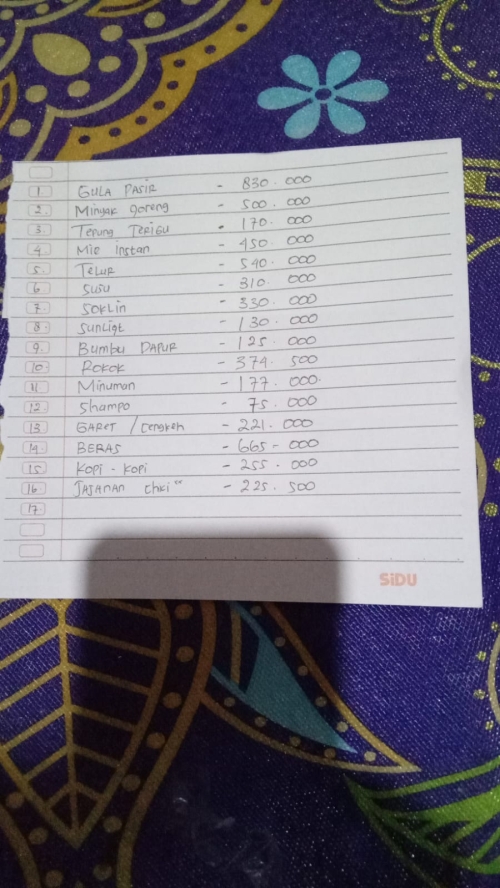 1. GULA PASIR - 830.000
2. Minyak goreng - 500.000
3. Tepung Terigu - 170.000
4. Mie instan - 450.000
5. Telur - 540.000
6 susu - 310.000
7. SOKLIN - 330.000
8 sunligt - 130.000
9. Bumbu DAPUR - 125.000
10. Rokok - 374.500
11 Minuman - 177.000.
12 shampo - 75.000
13 GARET / cengkeh - 221.000
14 BERAS - 665-000
15 KOPI - KOPI - 255.000
16 JAJANAN - 225.500
17.
SiDU